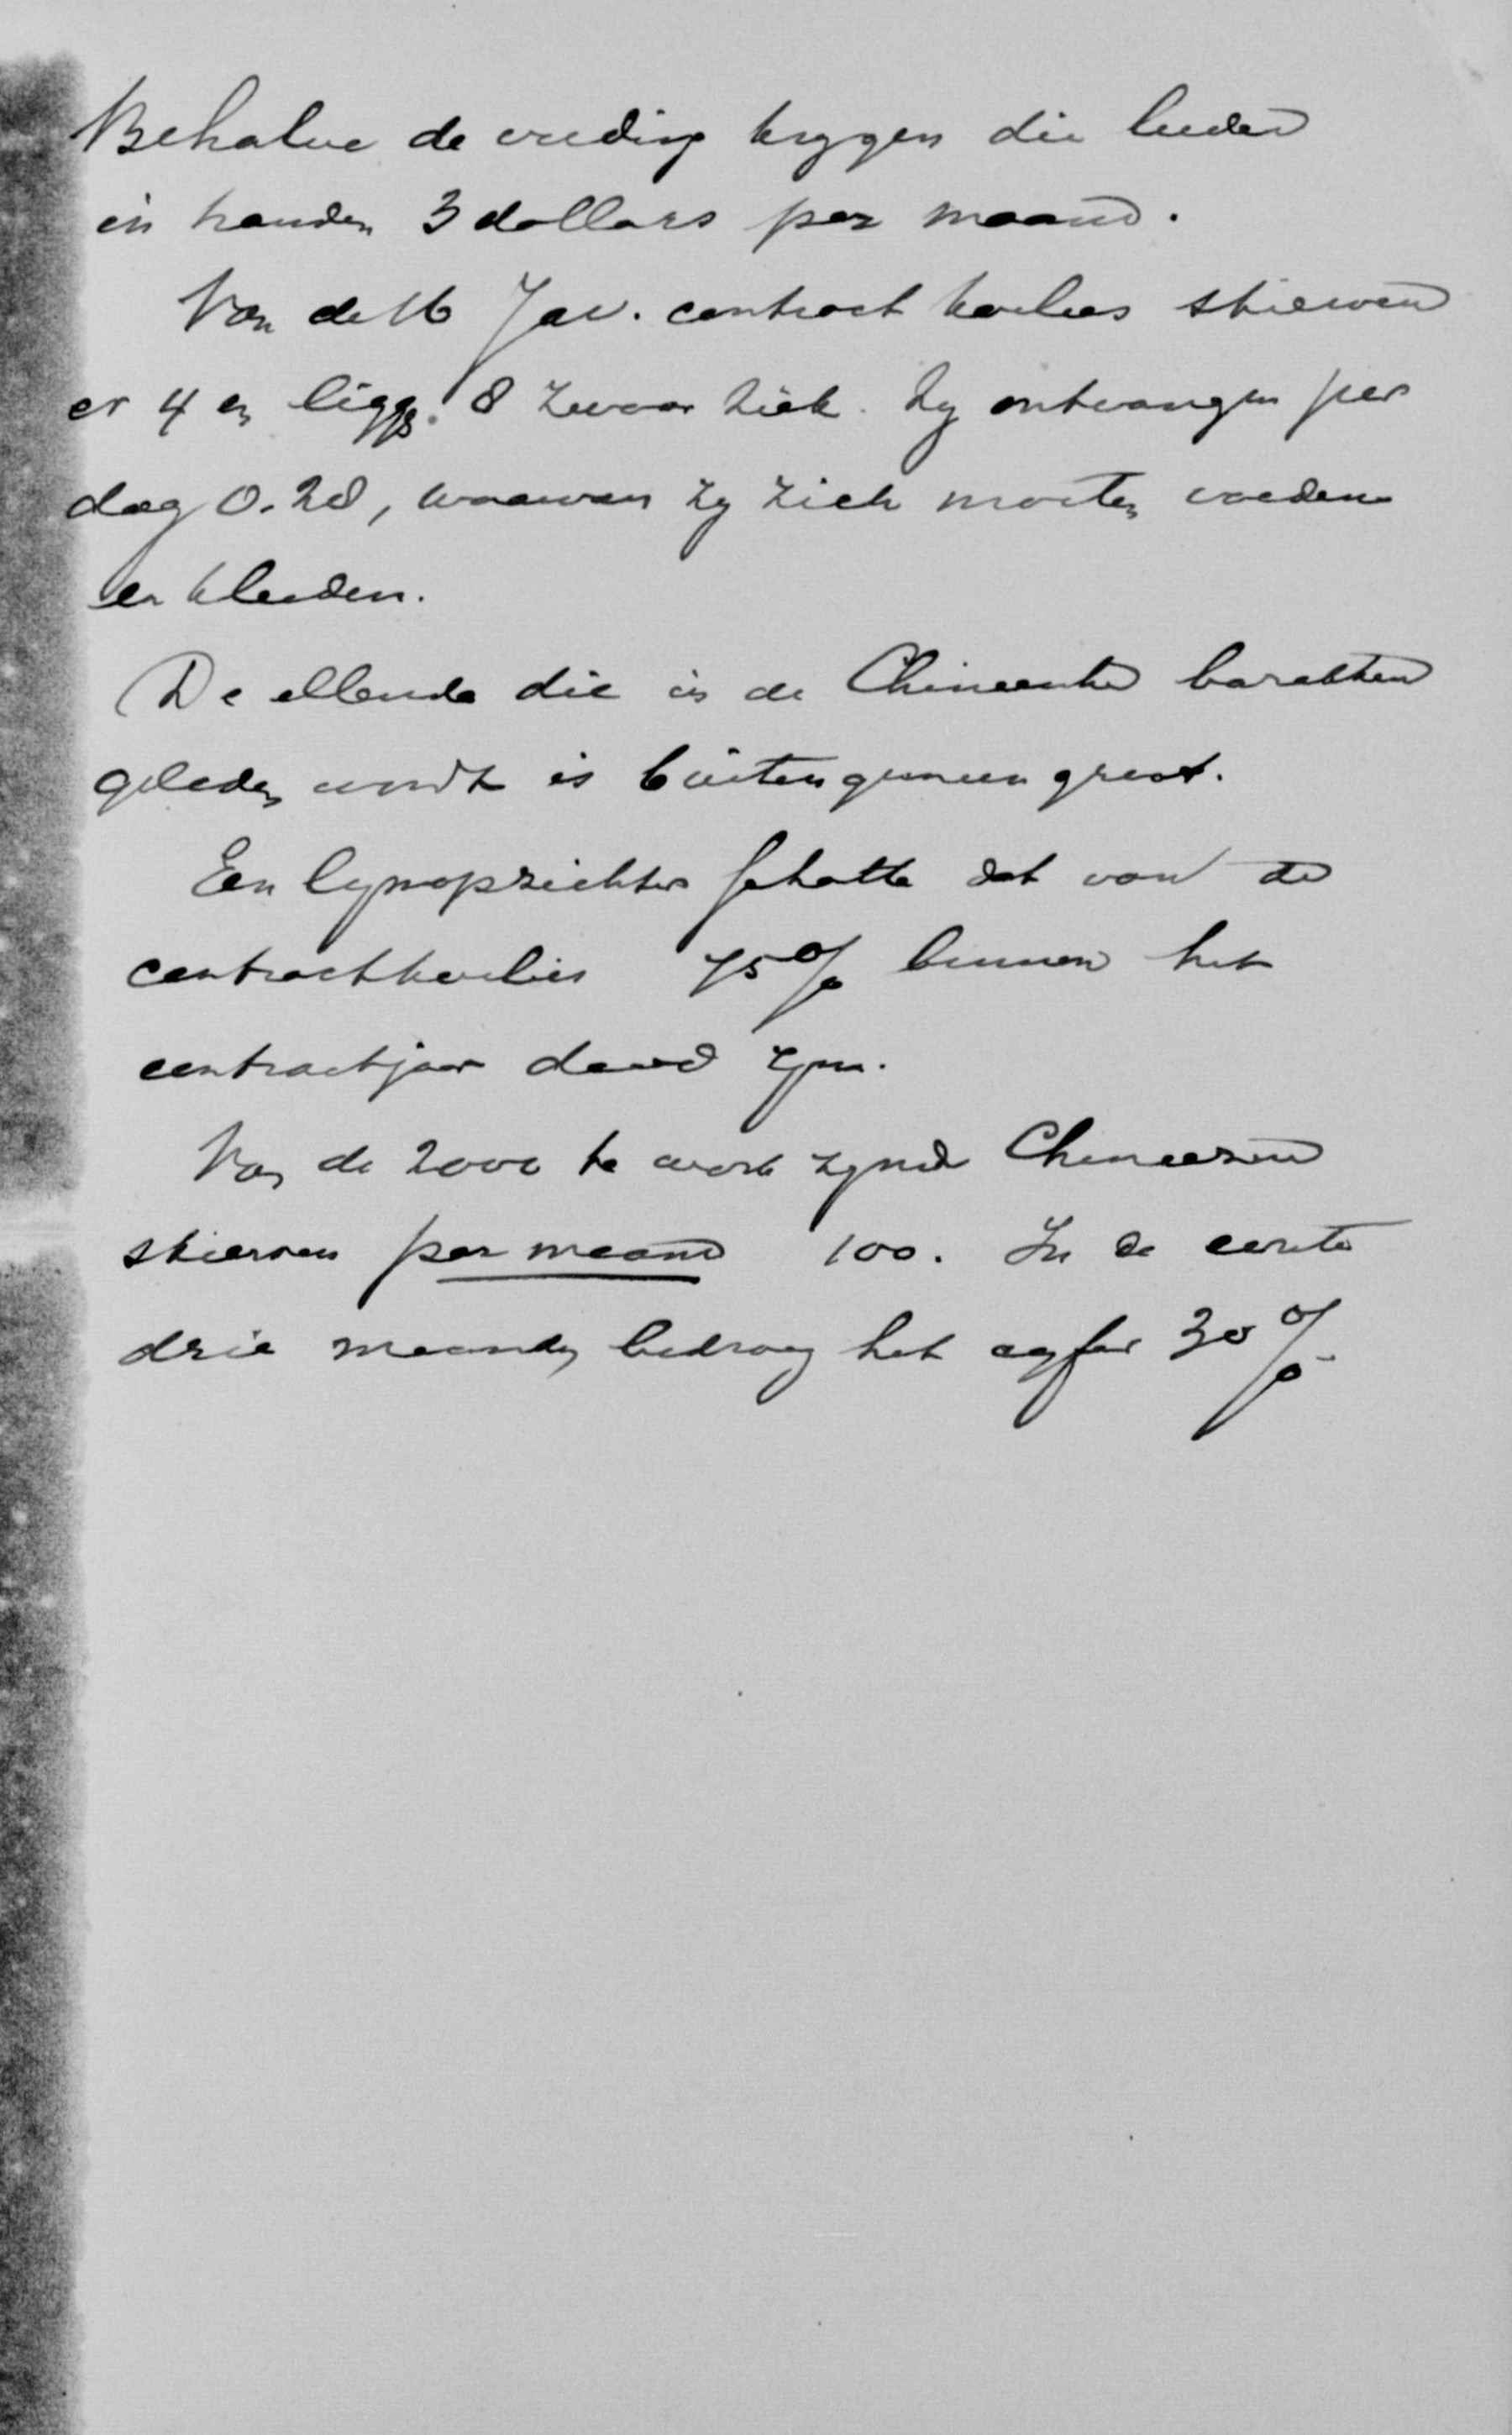 Behalve de voeding krygen die lieden
in handen 3 dollars per maand.
Van de 16 Jav. contract koelies stierven
er 4 en ligg. 8 zwaar ziek. Zy ontvangen per
dag 0.28, waarvan zy zich moeten voeden
en kleeden.
De ellende die in de Chineesche barakken
geleden wordt is buitengemeen groot.
Een lynopzichter schatte dat van de
contractkoelies 75% binnen het
contractjaar dood zyn.
Van de 2000 te werk zynde Chineezen
stierven per maand 100. In de eerste
drie maanden bedroeg het cyfer 30%